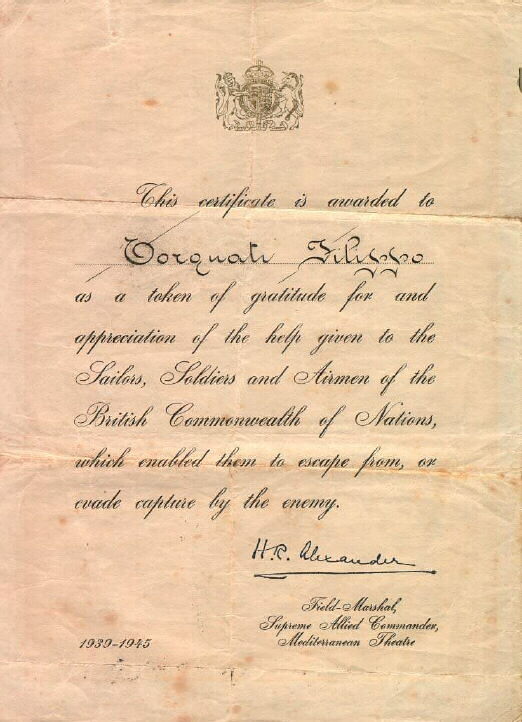 This certificate is awarded to
Torquati Filippo
as a token of gratitude for and
appreciation of the help given to the
Sailors, Soldiers and Airmen of the
British Commonwealth of Nations,
which enabled them to escape from, or
evade capture by the enemy.
H.R. Alexander
Field-Marshal,
Supreme Allied Commander,
Mediterranean Theatre
1939-1945